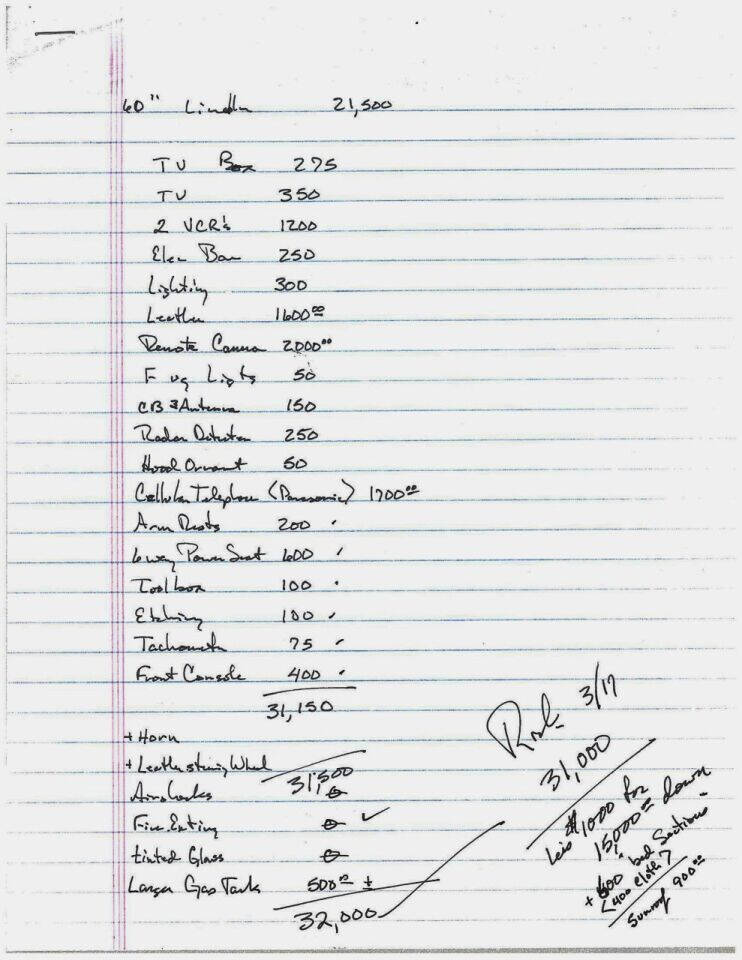 60" Lincoln 21,500
TV Box 275
TV 350
2 VCR's 1200
Elec Bar 250
Lighting 300
Leather 1600.00
Remote Camera 2000.00
Fog Lights 50
CB & Antenna 150
Radar Detector 250
Hood Ornament 50
Cellular Telephone (Panasonic) 1700.00
Arm Rests 200
6 way Power Seat 600
Tool box 100
Etching 100
Tachometer 75
Front Console 400
31,150
+ Horn
+ Leather steering Wheel
31,500
Airshocks 0
Fire Exting 0 ✓
tinted Glass 0
Larger Gas Tank 500.00 +
32,000
3/17
31,000
Less $1000 for
15,000.00 down
+ 600 bed Sections
< 400 cloth ?
Sunroof 900.00